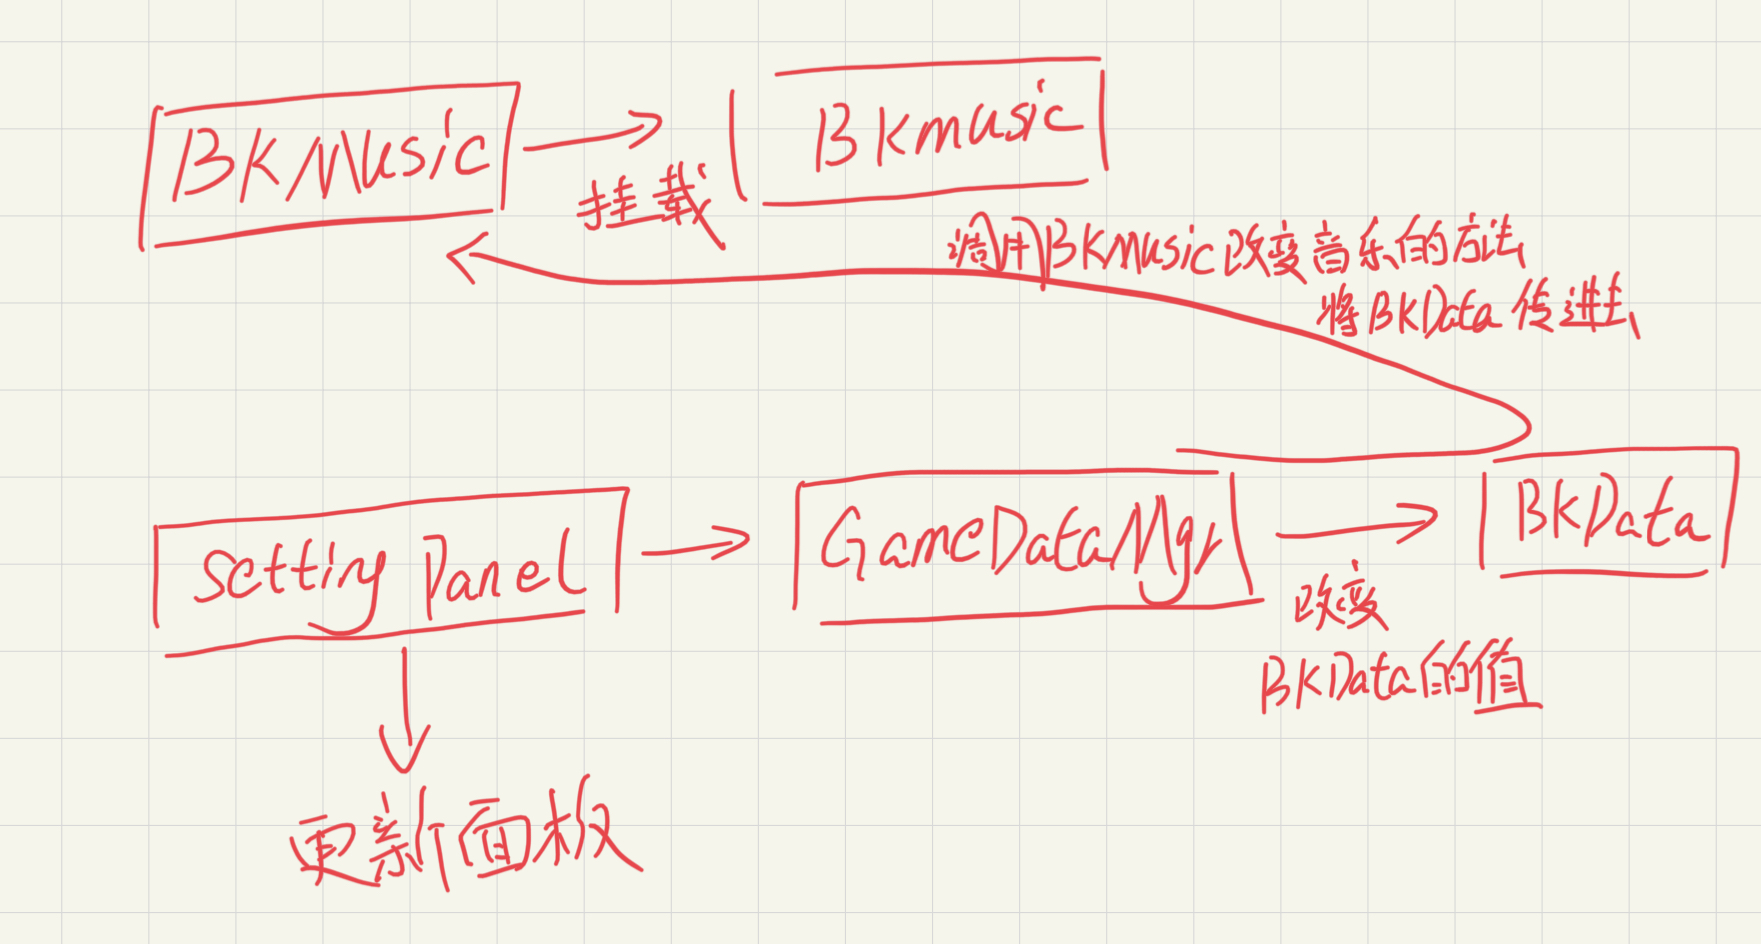 BKMusic
挂载
BKmusic
调用BKMusic改变音乐的方法
将BKData传进去
Setting Panel
GameDataMgr
改变
BKData的值
BKData
更新面板